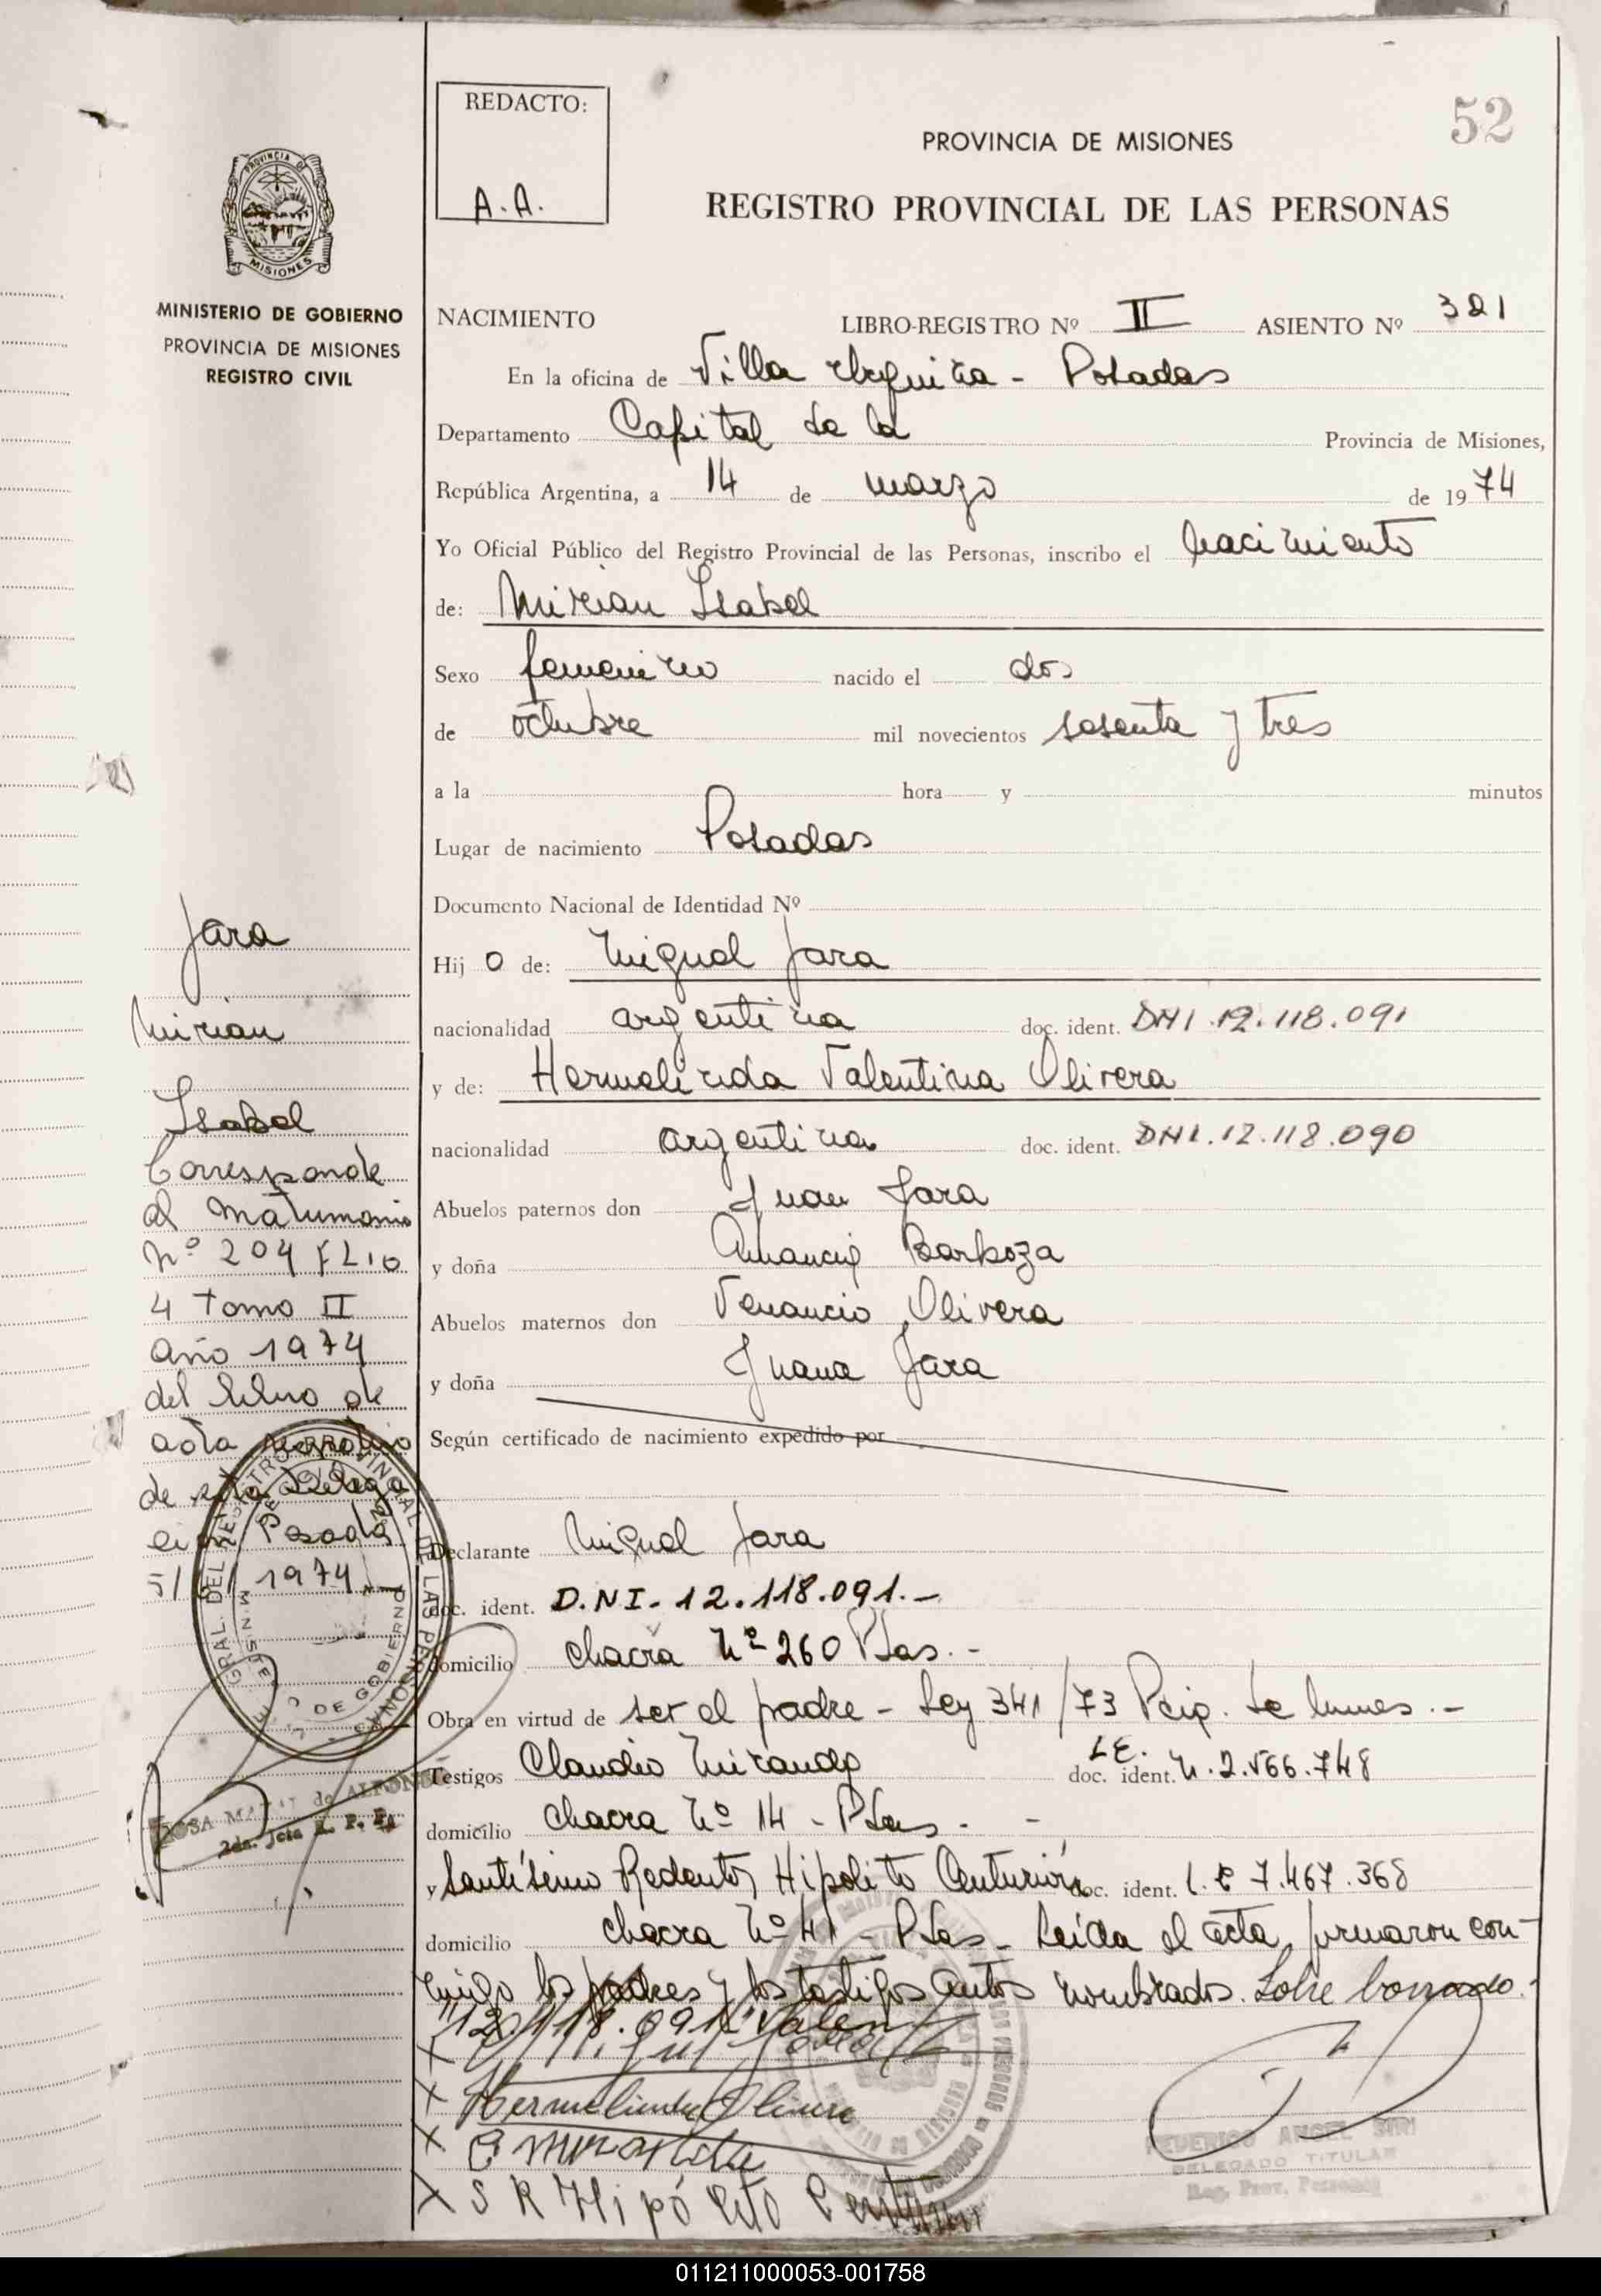 52
REDACTO:
A.A.
PROVINCIA DE MISIONES
REGISTRO PROVINCIAL DE LAS PERSONAS
PROVINCIA DE
MISIONES
MINISTERIO DE GOBIERNO
PROVINCIA DE MISIONES
REGISTRO CIVIL
NACIMIENTO LIBRO-REGISTRO Nº II ASIENTO Nº 321
En la oficina de Villa Urquiza - Posadas
Departamento Capital de la Provincia de Misiones,
República Argentina, a 14 de marzo de 1974
Yo Oficial Público del Registro Provincial de las Personas, inscribo el nacimiento
de: Mirian Isabel
Sexo femenino nacido el dos
de octubre mil novecientos sesenta y tres
a la hora y minutos
Lugar de nacimiento Posadas
Documento Nacional de Identidad Nº
Hij o de: Miguel Jara
nacionalidad argentina doc. ident. DNI.12.118.091
y de: Hermelinda Valentina Olivera
nacionalidad argentina doc. ident. DNI.12.118.090
Abuelos paternos don Juan Jara
y doña Amancia Barboza
Abuelos maternos don Venancio Olivera
y doña Juana Jara
Según certificado de nacimiento expedido por
Declarante Miguel Jara
doc. ident. D.N.I. 12.118.091.-
domicilio chacra Nº 260 Pdas.-
Obra en virtud de ser el padre - Ley 341/73 Pcip. de lunes.-
Testigos Claudio Miranda doc. ident. L.E. N. 2.566.748
domicilio Chacra Nº 14 - Pdas.-
y Santísimo Redentor Hipolito Centurión doc. ident. L.E 7.467.368
domicilio chacra Nº 41 - Pdas - Leída el acta, firmaron con-
migo los padres y los testigos antes nombrados. Sobre borrado.-
"12.118.091" Valen
X Miguel Jara
X Hermelinda Olivera
X C Miranda
X S R Hipólito Centurión
FEDERICO ANGEL SIRI
DELEGADO TITULAR
Reg. Prov. Personas
Jara
Mirian
Isabel
Corresponde
al Matrimonio
Nº 204 FLIO
4 Tomo II
año 1974
del libro de
acta
de esta Delega
ción Posadas
1974
GRAL. DEL REGISTRO PROVINCIAL DE LAS PERSONAS
MINISTERIO DE GOBIERNO
ROSA de ALFONSO
2da. Jefa R. P. P.
011211000053-001758